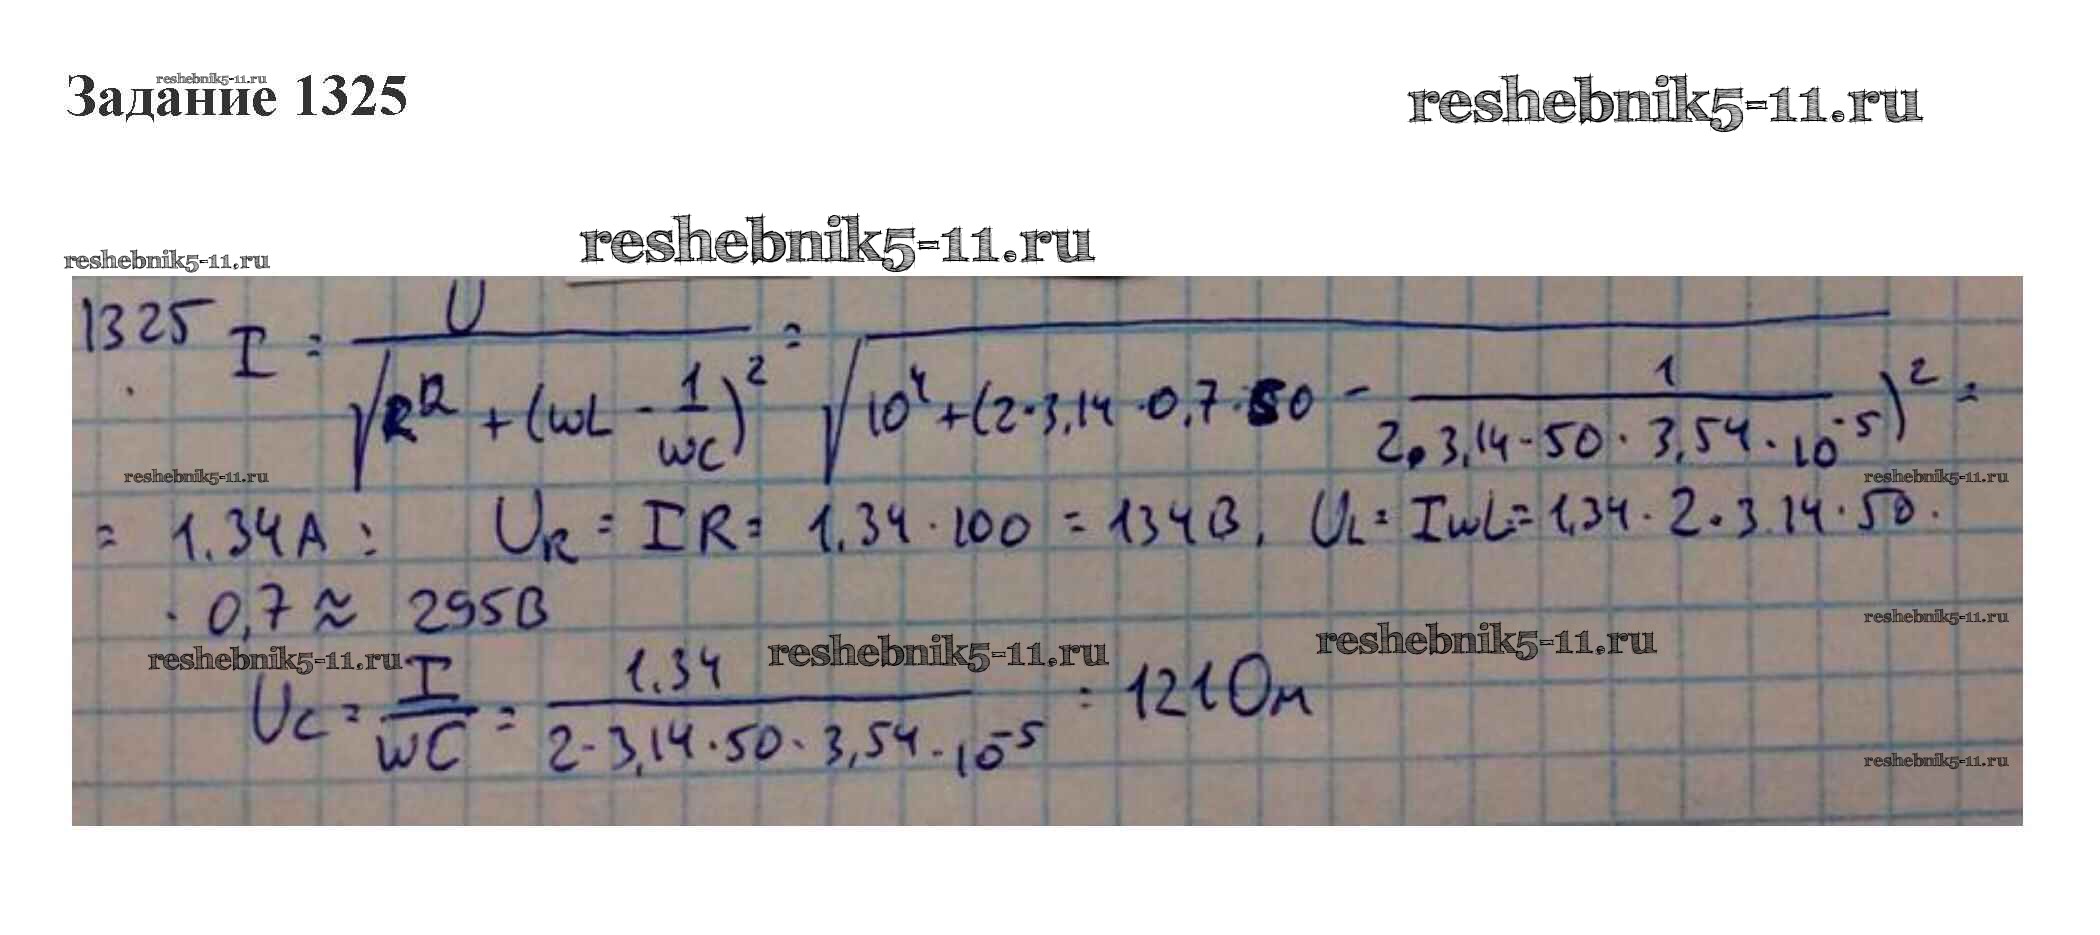 Задание 1325
reshebnik5-11.ru
reshebnik5-11.ru
reshebnik5-11.ru
reshebnik5-11.ru
1325 I = U / √(R² + (wL - 1/wC)²) = / √(10⁴ + (2·3,14·0,7·50 - 1/(2·3,14·50·3,54·10⁻⁵))² =
reshebnik5-11.ru
reshebnik5-11.ru
= 1.34A; U_R = IR = 1.34·100 = 134В, U_L = IwL = 1,34·2·3.14·50·
·0,7 ≈ 295В
reshebnik5-11.ru
reshebnik5-11.ru
reshebnik5-11.ru
reshebnik5-11.ru
U_C = I/wC = 1.34/(2·3,14·50·3,54·10⁻⁵) = 121Ом
reshebnik5-11.ru